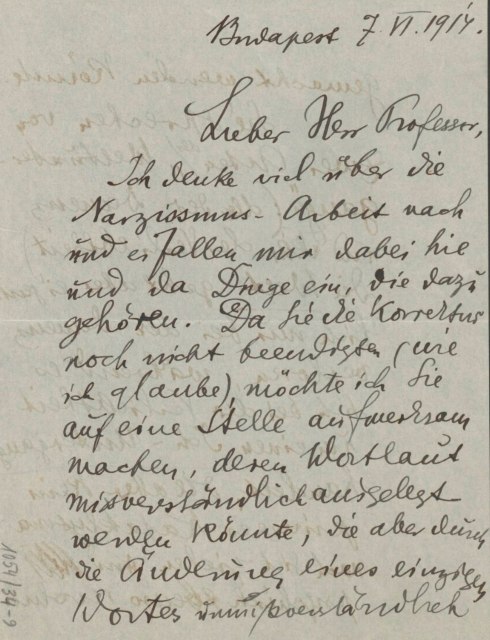 Budapest 7. VI. 1914.
Lieber Herr Professor,
Ich denke viel über die
Narzissmus-Arbeit nach
und es fallen mir dabei hie
und da Dinge ein, die dazu
gehören. Da Sie die Korrektur
noch nicht beendigten (wie
ich glaube), möchte ich Sie
auf eine Stelle aufmerksam
machen, deren Wortlaut
missverständlich ausgelegt
werden könnte, die aber durch
die Änderung eines einzigen
Wortes unmissverständlich
1057/34-9